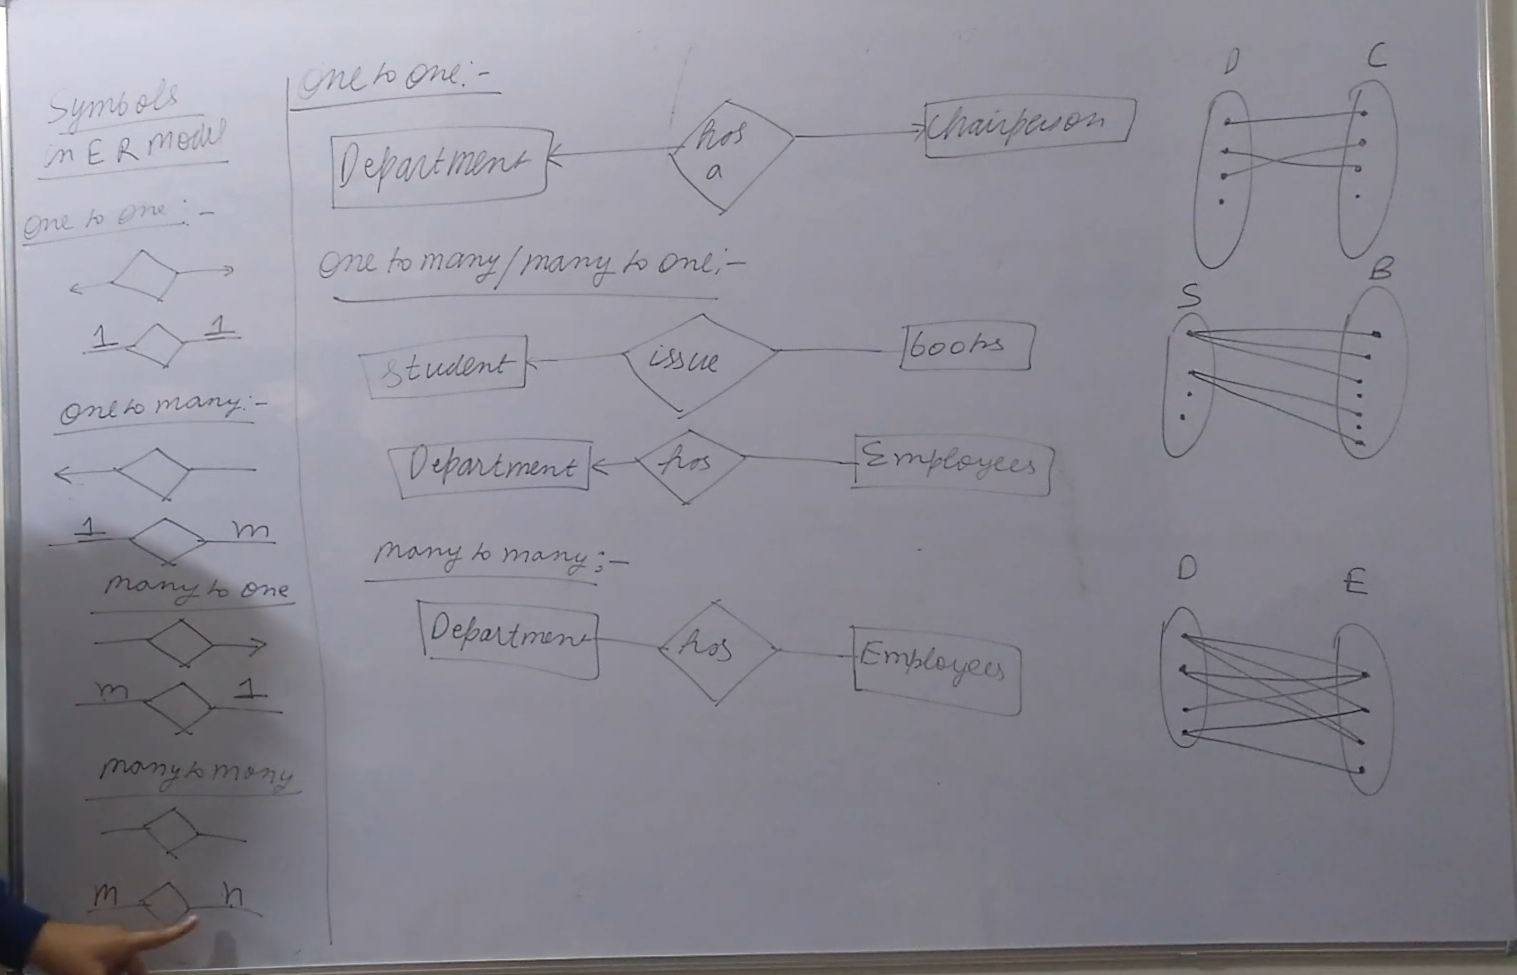 Symbols
in ER model
one to one :-
1 1
one to many:-
1 m
many to one
m 1
many to many
m n
one to one:-
Department
has
a
chairperson
one to many/many to one:-
student
issue
books
Department
has
Employees
many to many:-
Department
has
Employees
D C
S B
D E